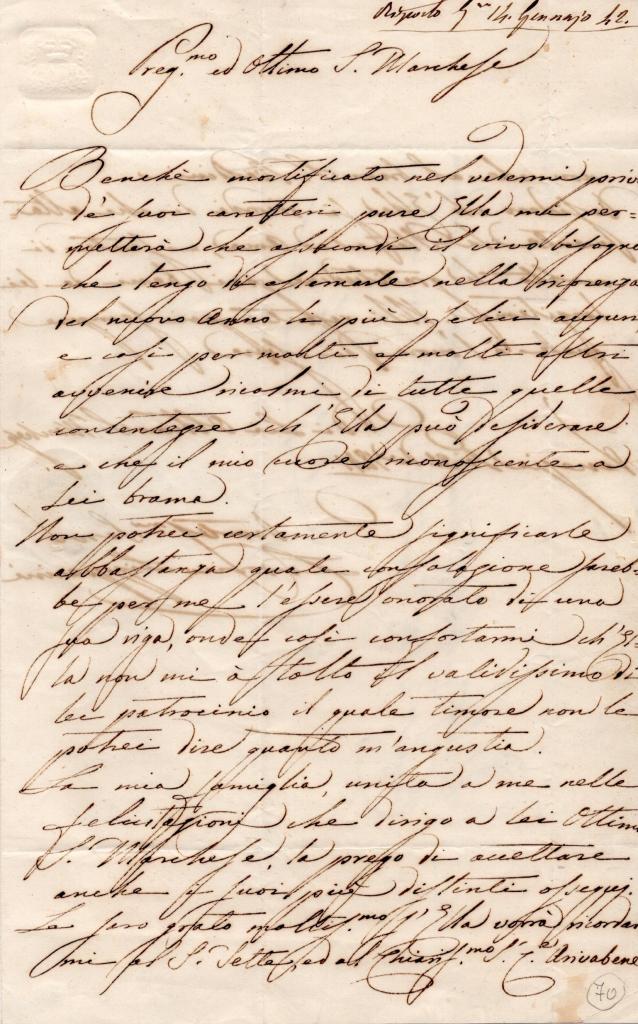 Risposto 14. Gennajo 42.
Preg.mo ed Ottimo S.r Marchese
Benchè mortificato nel vedermi privo
de' suoi caratteri pure Ella mi per=
metterà che assecondi il vivo bisogno
che tengo di esternarle nella ricorrenza
del nuovo Anno li più felici auguri
e così per molti e molti altri
avvenire ricolmi di tutte quelle
contentezze ch'Ella può desiderare
e che il mio cuore riconoscente a
Lei brama.
Non potrei certamente significarle
abbastanza quale consolazione sareb=
be per me l'essere onorato di una
sua riga, onde così confortarmi ch'El=
la non mi à tolto il validissimo di
lei patrocinio il quale timore non le
potrei dire quanto m'angustia.
La mia famiglia, unita a me nelle
felicitazioni che dirigo a lei Ottimo
S.r Marchese, la prego di accettare
anche i suoi più distinti ossequj.
Le sarò grato moltis.mo s'Ella vorrà ricordar
mi al S.r Tette, ed al Chiaris.mo S.r Arivabene
70